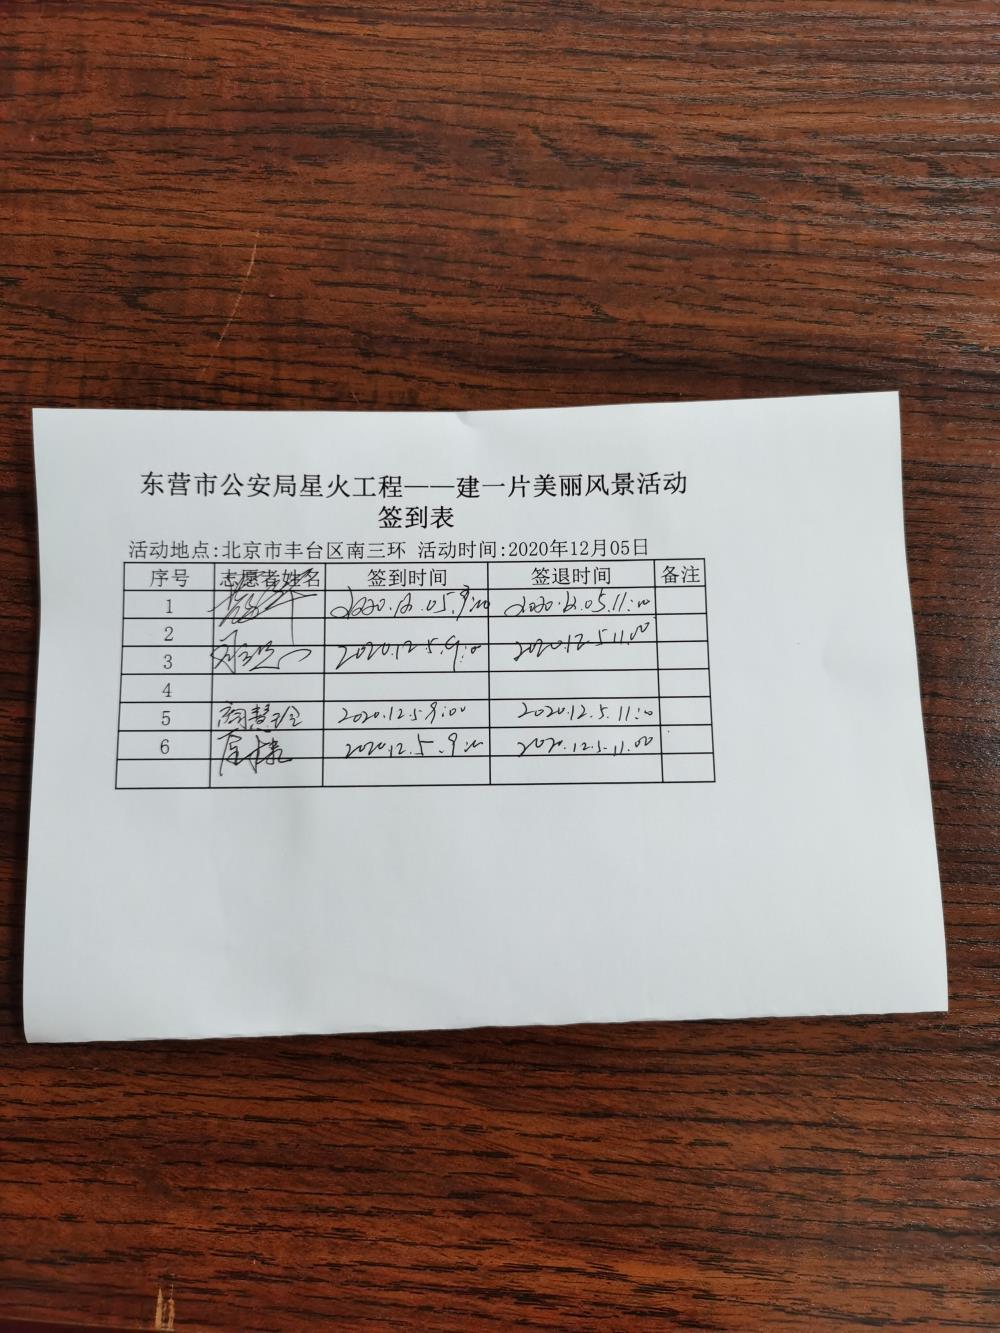 东营市公安局星火工程——建一片美丽风景活动
签到表
活动地点:北京市丰台区南三环 活动时间:2020年12月05日
序号 志愿者姓名 签到时间 签退时间 备注
1 2020.12.05.9:00 2020.12.05.11:00
2
3 2020.12.5.9:00 2020.12.5.11:00
4
5 2020.12.5.9:00 2020.12.5.11:00
6 2020.12.5.9:00 2020.12.5.11:00